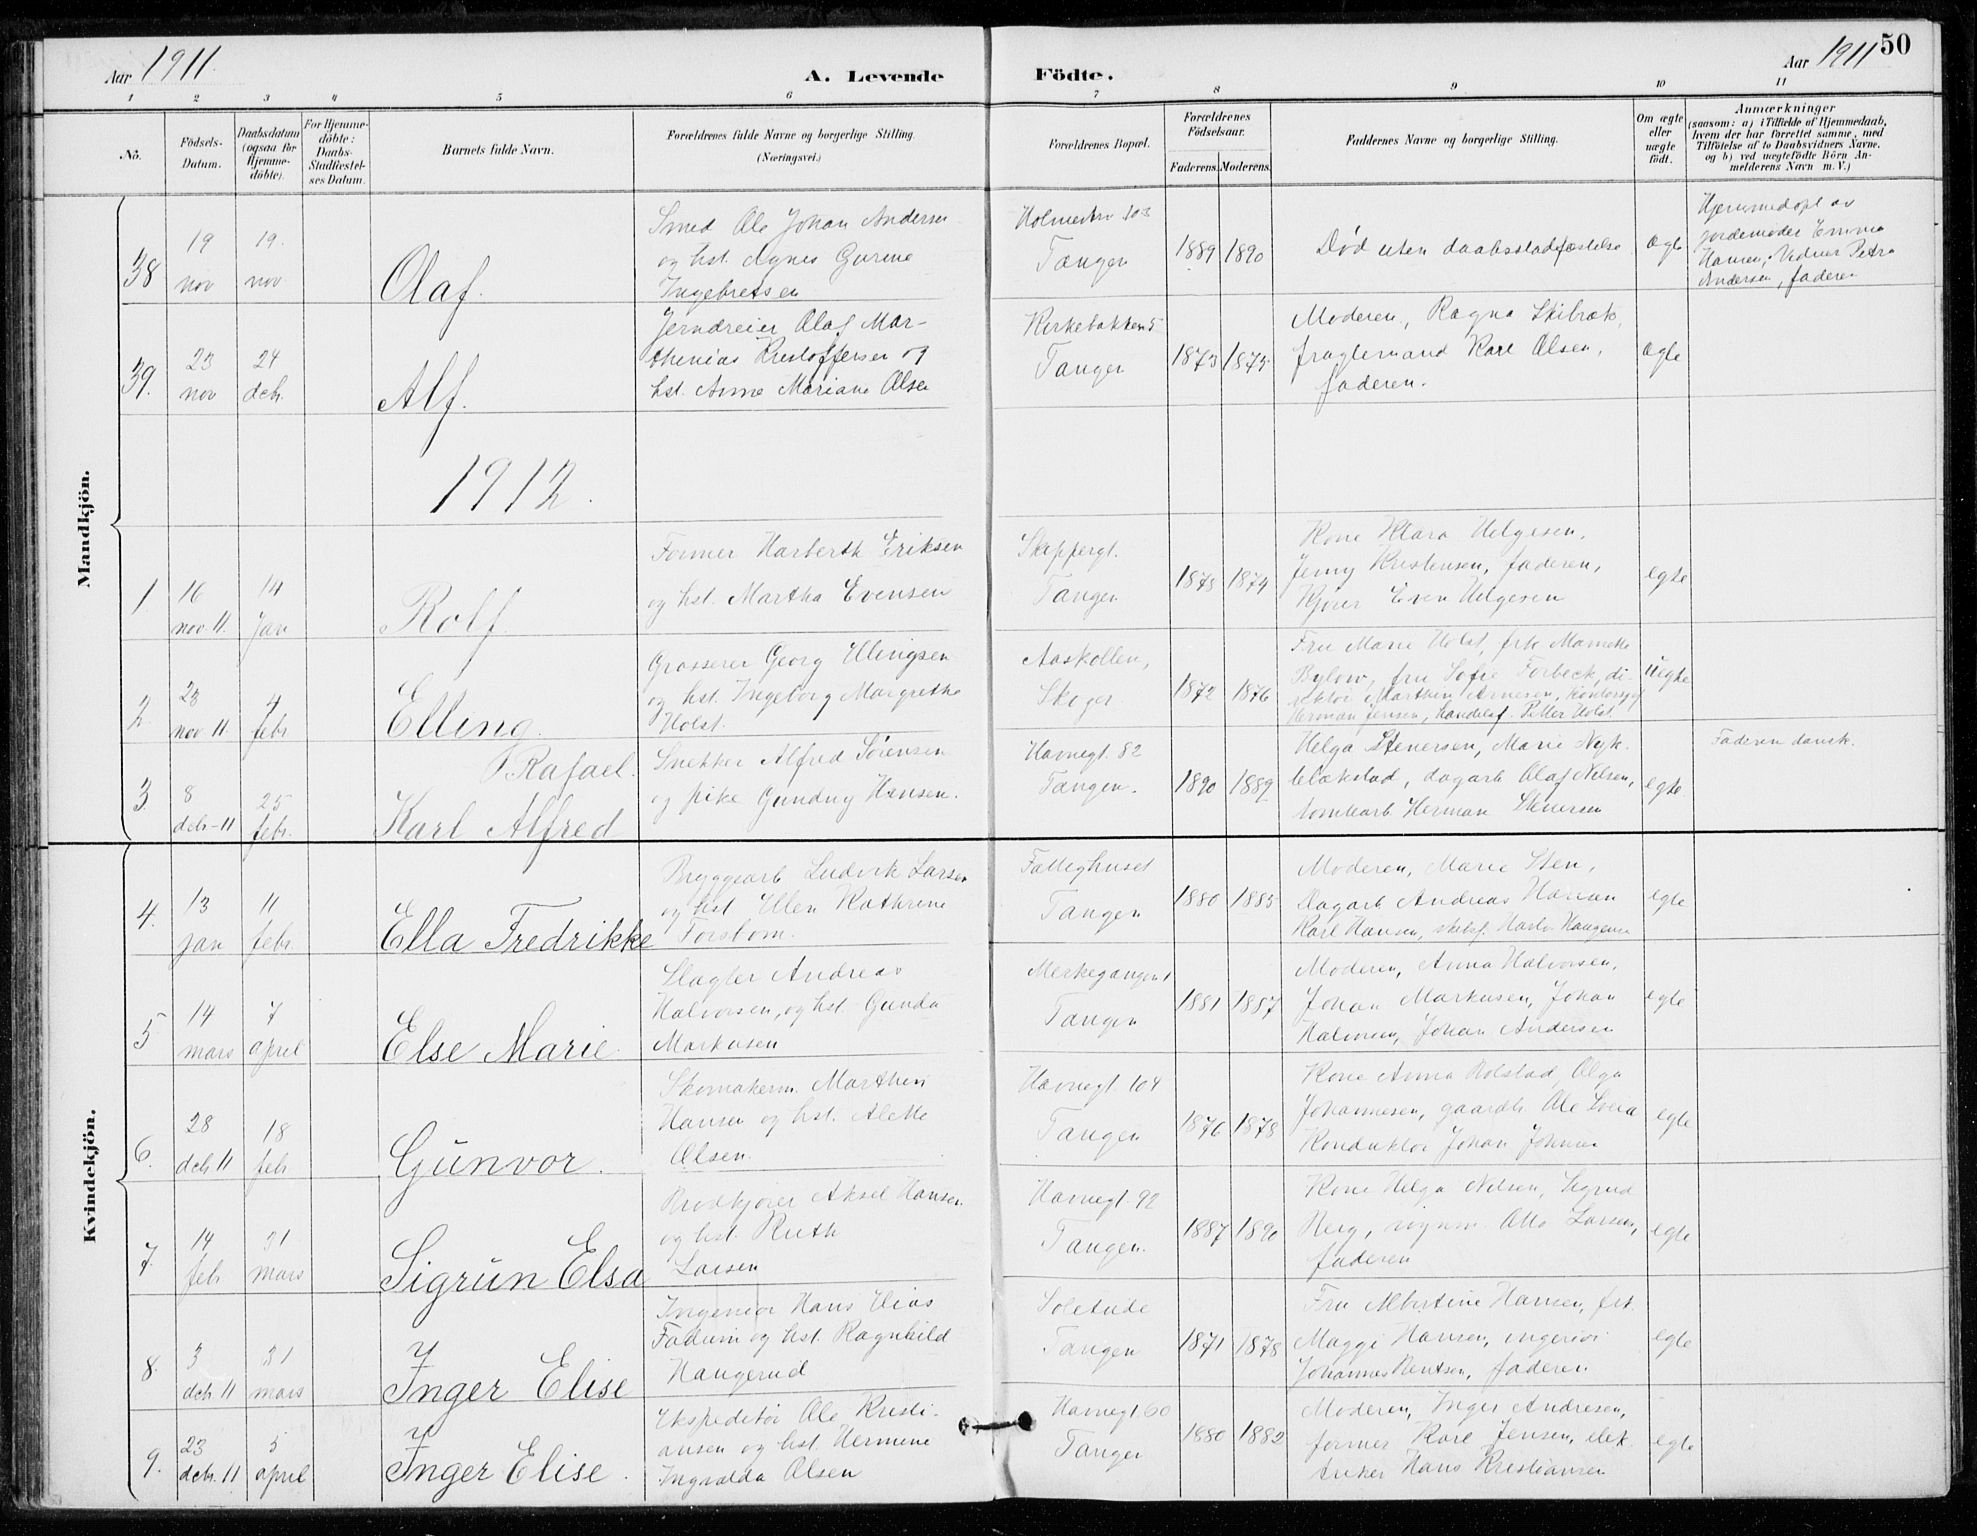 Aar 1911.
A. Levende
Födte.
Aar 1911
50
1 2 3 4 5 6 7 8 9 10 11
No.
Födsels-
Datum.
Daabsdatum
(ogsaa for
Hjemme-
döbte).
For Hjemme-
döbte:
Daabs-
Stadfæstel-
ses Datum.
Barnets fulde Navn.
Forældrenes fulde Navne og borgerlige Stilling.
(Næringsvei.)
Forældrenes Bopæl.
Forældrenes
Födselsaar.
Faderens. Moderens.
Faddernes Navne og borgerlige Stilling.
Om ægte
eller
uægte
födt.
Anmærkninger
(saasom: a) i Tilfælde af Hjemmedaab,
hvem der har forrettet samme, med
Tilföielse af to Daabsvidners Navne.
og b) ved uægtefödte Börn An-
melderens Navn m. V.)
Mandkjön.
38
19
nov
19.
nov
Olaf.
Smed Ole Johan Andersen
og hst. Agnes Gurine
Ingebretsen
103
Tangen
1889 1890
Død uten daabsstadfæstelse
ægte
Hjemmedøpt av
jordemoder Emma
Hansen, Vidner Petra
Andersen, faderen
39.
23
nov
24
dch.
Alf.
Jerndreier Olaf Mar-
thinius Kristoffersen og
hst. Anne Mariane Olsen
Kirkebakken 5
Tangen
1873 1875
Moderen, Ragna Skibræk,
fragtemand Karl Olsen,
faderen.
ægte
1912.
1
16
nov 11.
14
jan
Rolf
Former Harberth Eriksen
og hst. Martha Evensen
Skippergt.
Tangen
1873 1874
Kone Klara Helgesen,
Jenny Kristensen, faderen,
Kjører Even Helgesen
egte
2.
23
nov 11.
4
febr
Elling.
Grosserer Georg Ellingsen
og hst. Ingeborg Margrethe
Holst.
Aaskollen,
Skoger.
1872 1876
Fru Marie Holst, frk
Bylow, fru Sofie Torbeck, di-
rektør Marthin Arnesen,
Herman Jensen, Petter Holst
uegte
3
8
dch-11
25
febr.
Rafael.
Karl Alfred
Snekker Alfred Sørensen
og pike Gundny Hansen.
Havnegt. 82
Tangen.
1890 1889
Helga Stenersen, Marie
dagarb Olaf Nilsen,
tomtearb Herman Stenersen
egte
Faderen dansk.
Kvindekjön.
4.
13
jan
11
febr
Ella Fredrikke
Bryggearb Ludvik Larsen
og hst Ellen Kathrine
Forsbom.
Fattighuset
Tangen
1880 1885
Moderen, Marie Sten,
Dagarb Andreas Hansen
Karl Hansen,
egte
5
14
mars
7
april
Else Marie.
Slagter Andreas
Halvorsen, og hst. Gunda
Markusen
Merkegangen 1
Tangen
1881 1887
Moderen, Anna Halvorsen,
Johan Markusen, Johan
Halvorsen, Johan Andersen
egte
6.
28
dch 11
18
feb
Gunvor.
Skomakerm. Marthin
Hansen og hst. Alette
Olsen.
Havnegt 104
Tangen
1876 1878
Kone Anna Rolstad, Olga
Johannesen, gaardbr. Ole
Konduktør Johan
egte
7.
14
feb
31
mars
Sigrun Elsa
Brødkjører Aksel Hansen
og hst. Ruth
Larsen
Havnegt 92
Tangen.
1887 1890
Kone Helga Nilsen, Sigrud
Berg, Otto Larsen,
faderen
egte
8.
3
dch 11
31
mars
Inger Elise
Ingeniør Hans Elias
Fadum og hst. Ragnhild
Haugerud
Soletude
Tangen
1871 1878
Fru Albertine Hansen, frk.
Maggi Hansen, ingeniør
Johannes Bentsen, faderen
egte
9.
23
dch. 11
5
april
Inger Elise.
Ekspeditør Ole Kristi-
ansen og hst. Hermine
Ingvalda Olsen
Havnegt. 60
Tangen
1880 1882
Moderen, Inger Andresen,
former Karl Jensen, elek.
Hans Kristiansen
egte